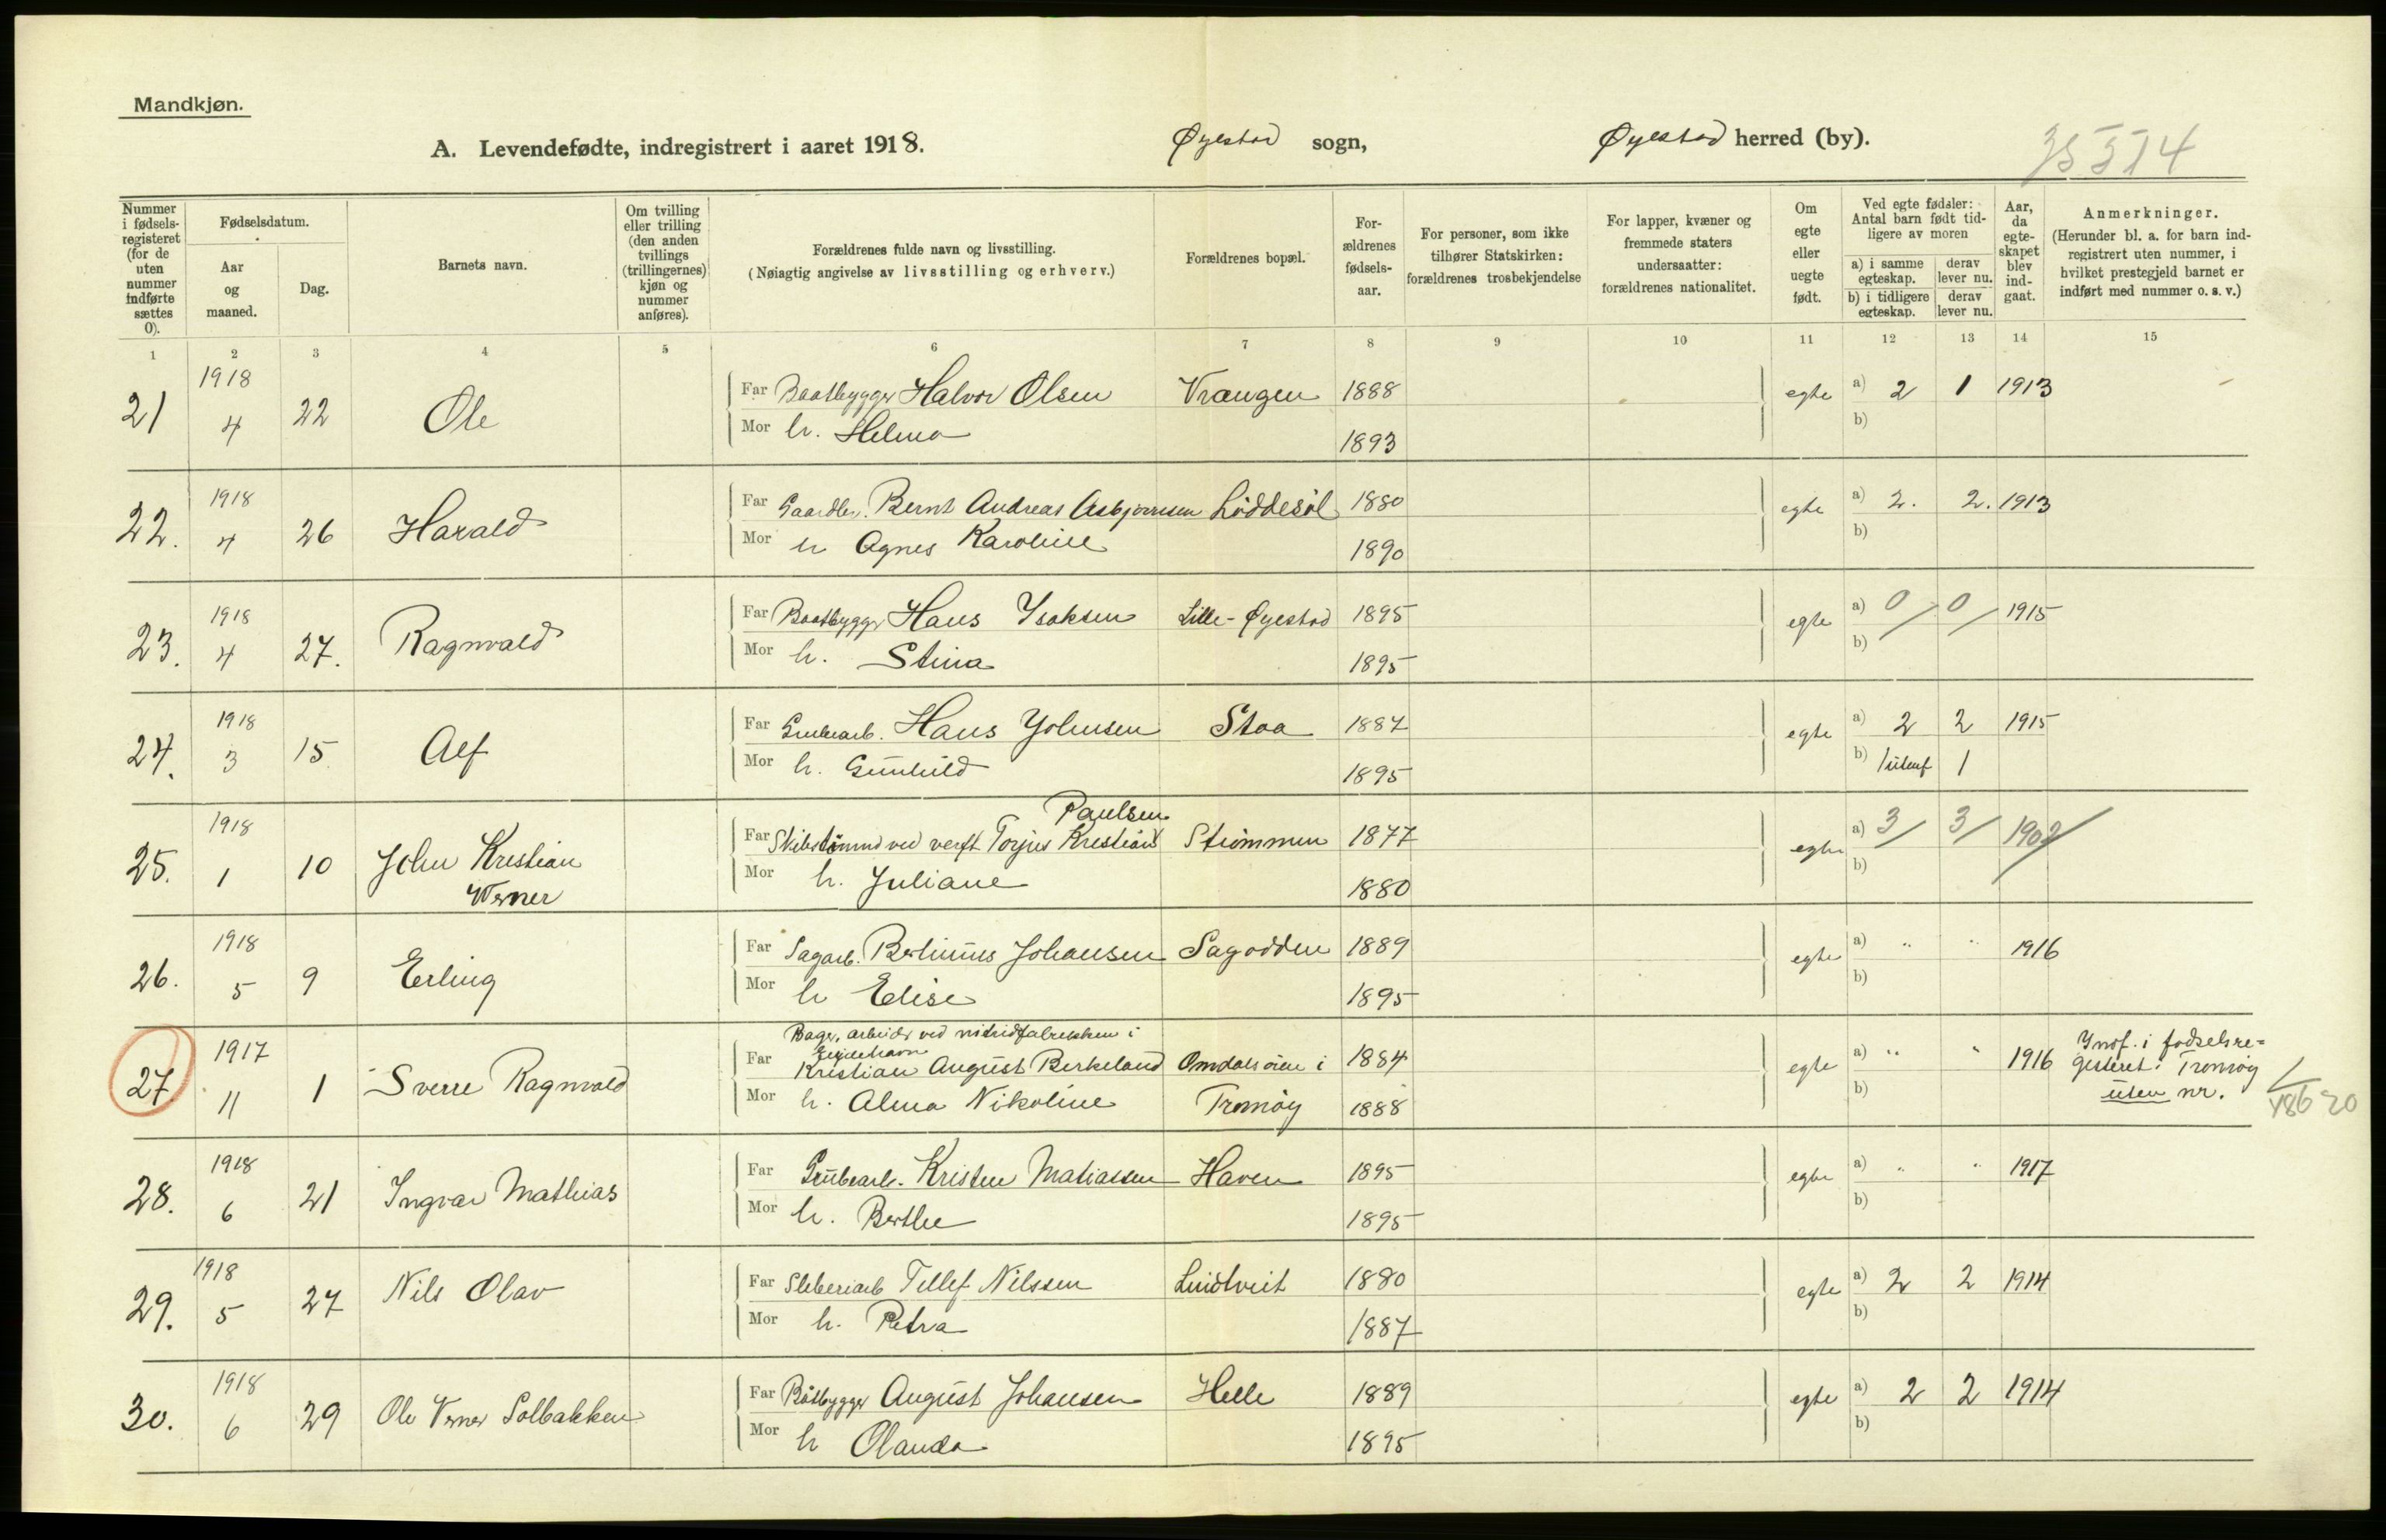 Mandkjøn.
A. Levendefødte, indregistrert i aaret 1918. Øyestad sogn, Øyestad herred (by).
Nummer i fødselsregisteret (for de uten nummer indførte sættes 0).
Fødselsdatum.
Aar og maaned.
Dag.
Barnets navn.
Om tvilling eller trilling (den anden tvillings (trillingernes) kjøn og nummer anføres).
Forældrenes fulde navn og livsstilling.
(Nøiagtig angivelse av livsstilling og erhverv.)
Forældrenes bopæl.
Forældrenes fødselsaar.
For personer, som ikke tilhører Statskirken: forældrenes trosbekjendelse
For lapper, kvæner og fremmede staters undersaatter: forældrenes nationalitet.
Om egte eller uegte født.
Ved egte fødsler: Antal barn født tidligere av moren
a) i samme egteskap. derav lever nu.
b) i tidligere egteskap. derav lever nu.
Aar, da egteskapet blev indgaat.
Anmerkninger.
(Herunder bl. a. for barn indregistrert uten nummer, i hvilket prestegjeld barnet er indført med nummer o. s. v.)
1 2 3 4 5 6 7 8 9 10 11 12 13 14 15
21 1918 4 22 Ole Far Baatbygger Halvor Olsen Vrængen 1888 egte a) 2 1 1913
Mor h. Helma 1893 b)
22. 1918 4 26 Harald Far Gaardbr. Bernt Andreas Asbjørnsen Løddesøl 1880 egte a) 2. 2. 1913
Mor h Agnes Karoline 1890 b)
23. 1918 4 27. Ragnvald Far Baatbygger Hans Isaksen Lille-Øyestad 1895 egte a) 0 0 1915
Mor h. Stina 1895 b)
24. 1918 3 15 Alf Far Grubearb. Hans Johnsen Stoa 1887 egte a) 2 2 1915
Mor h. Gunhild 1895 b) 1 utenf 1
25. 1918 1 10 John Kristian Werner Far ved verft Torjus Kristian Paulsen Strømmen 1877 egte a) 3 3 1902
Mor h. Juliane 1880 b)
26. 1918 5 9 Erling Far Sagarb. Bertinius Johansen Sagodden 1889 egte a) " " 1916
Mor h Elise 1895 b)
27. 1917 11 1 Sverre Ragnvald Far Bager, arbeider ved nitridfabrikken i Eydehavn
Kristian August Berkeland Omdalsøien i 1884 egte a) " " 1916 Innf. i fødselsre=
gisteret i Tromøy
uten nr.
Mor h. Alma Nikoline Tromøy 1888 b)
28. 1918 6 21 Ingvar Mathias Far Grubearb. Kristen Matiassen Haven 1895 egte a) " " 1917
Mor h. Berthe 1895 b)
29. 1918 5 27 Nils Olav Far Sliberiarb Tellef Nilssen Lindtveit 1880 egte a) 2 2 1914
Mor h. Petra 1887 b)
30. 1918 6 29 Ole Verner Solbakken Far Båtbygger August Johansen Helle 1889 egte a) 2 2 1914
Mor h Olanda 1895 b)